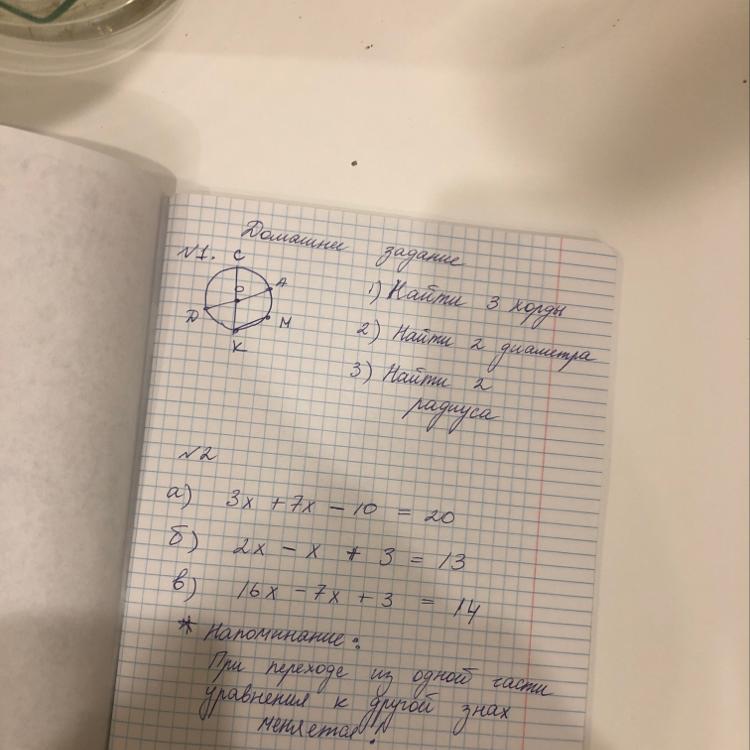 Домашнее задание
№1.
C
O
A
D
M
K
1) Найти 3 хорды
2) Найти 2 диаметра
3) Найти 2
радиуса
№2
а) 3x + 7x - 10 = 20
б) 2x - x + 3 = 13
в) 16x - 7x + 3 = 14
* Напоминание:
При переходе из одной части
уравнения к другой знак
меняется!